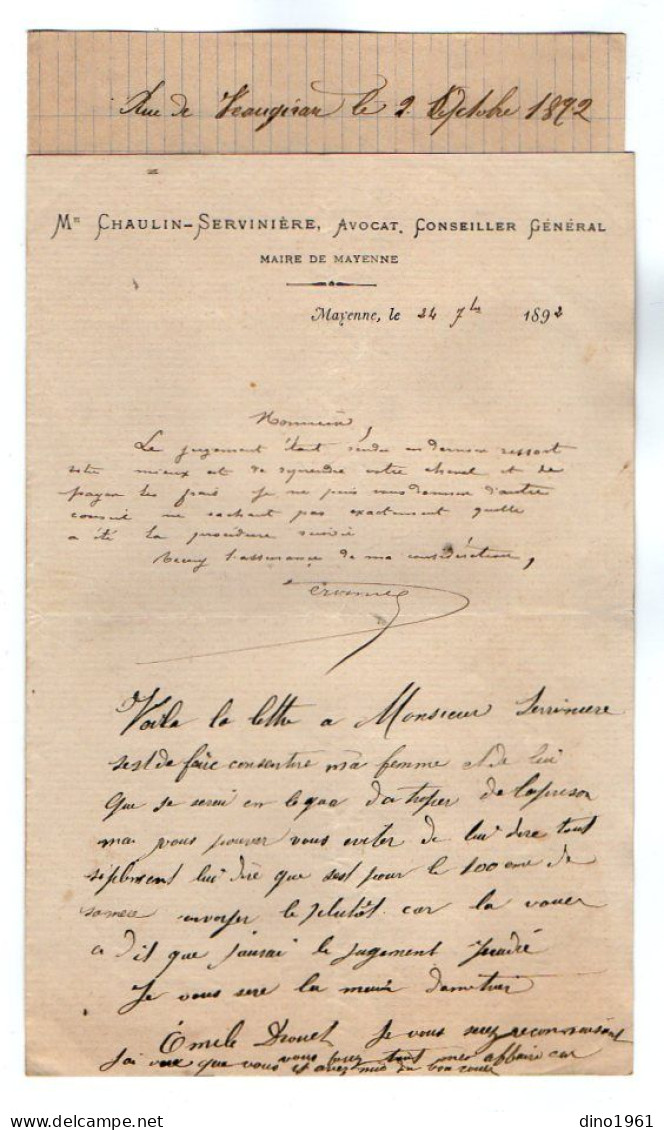 Rue de Veaugirar le 2 Octobre 1892
Mtre CHAULIN-SERVINIÈRE, AVOCAT, CONSEILLER GÉNÉRAL
MAIRE DE MAYENNE
Mayenne, le 24 7bre 1892
Monsieur,
Le jugement étant rendu en dernier ressort
votre mieux est de reprendre votre cheval et de
payer les frais Je ne puis vous donner d'autre
conseil ne sachant pas exactement quelle
a été la procédure suivie
Recevez l'assurance de ma considération,
Servinière
Voila la lettre a Monsieur Serviniere
sest de faire consentre ma femme et de lui
que je serai en de
ma vous pouver vous eviter de lui dire tout
siplement lui dire que sest pour le 100 eme de
samere envoyer le plutôt car la
a dit que jaurai le jugement Jeudi
Je vous sere la main
Émile Drouet Je vous serez reconnaisant
jai vue que vous vous tout mes affaire car
et avez mis
dino1961